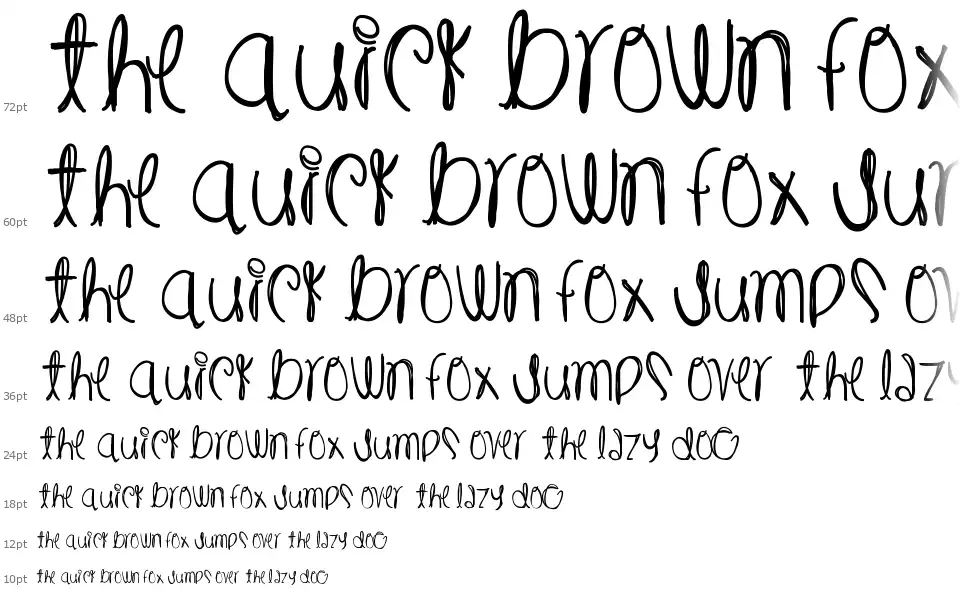 72pt the quick brown fox
60pt the quick brown fox jum
48pt the quick brown fox jumps ov
36pt the quick brown fox jumps over the lazy
24pt the quick brown fox jumps over the lazy dog
18pt the quick brown fox jumps over the lazy dog
12pt the quick brown fox jumps over the lazy dog
10pt the quick brown fox jumps over the lazy dog